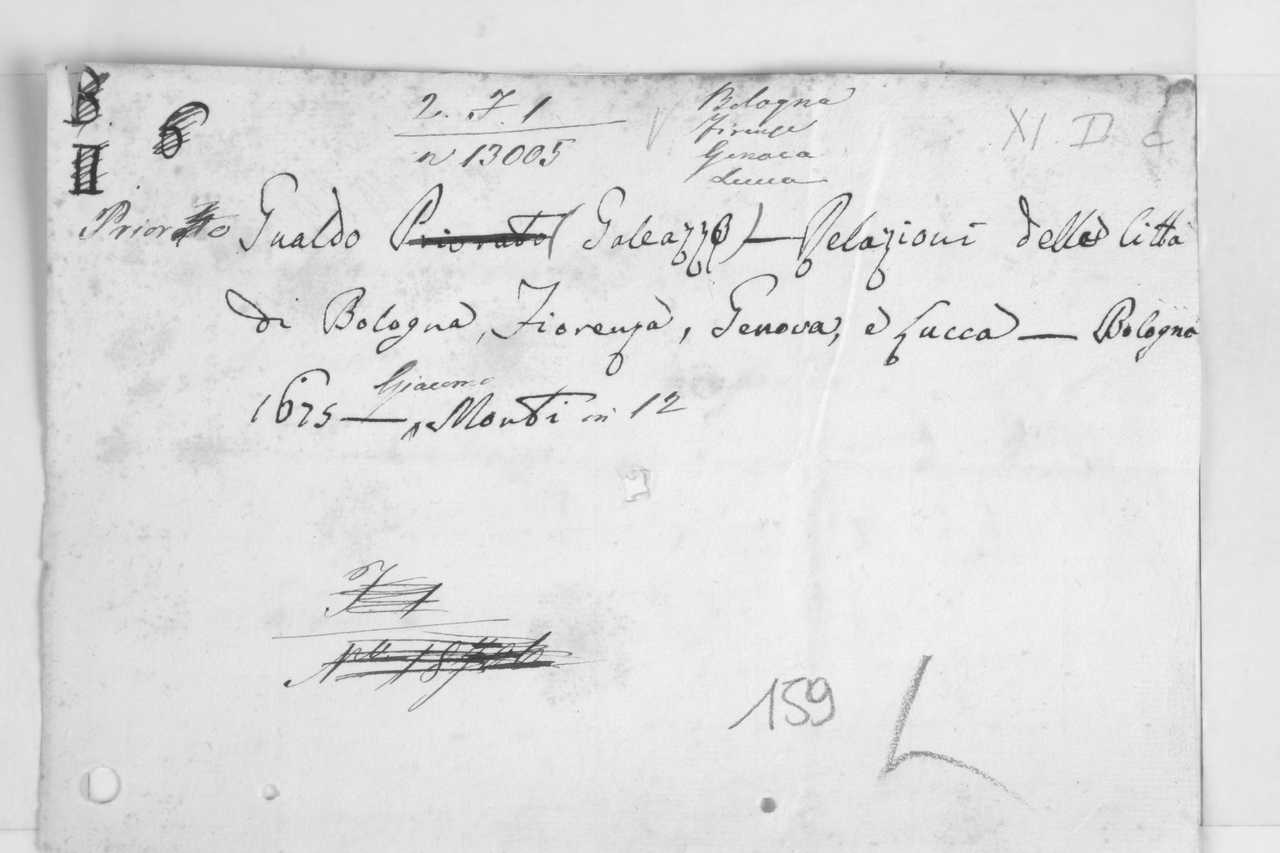 B
6
2. F. 1
n 13005
Bologna
Firenze
Genova
Lucca
XI. D c
II
Priorato Gualdo Priorato (Galeazzo) — Relazioni delle Città
di Bologna, Fiorenza, Genova, e Lucca — Bologna
Giacomo
1675 — pe Monti in 12
F 1
159 L